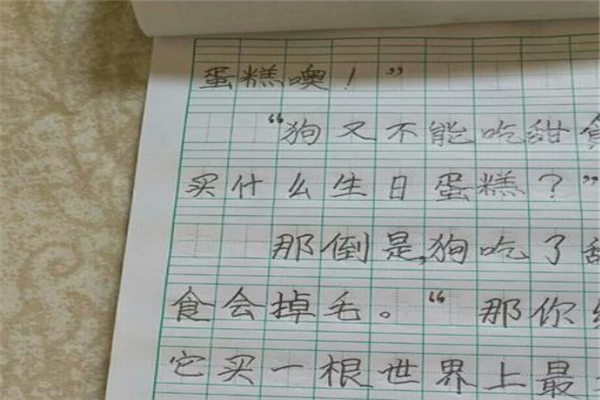 蛋糕噢！”
“狗又不能吃甜
买什么生日蛋糕？”
那倒是,狗吃了
食会掉毛。“那你
它买一根世界上最